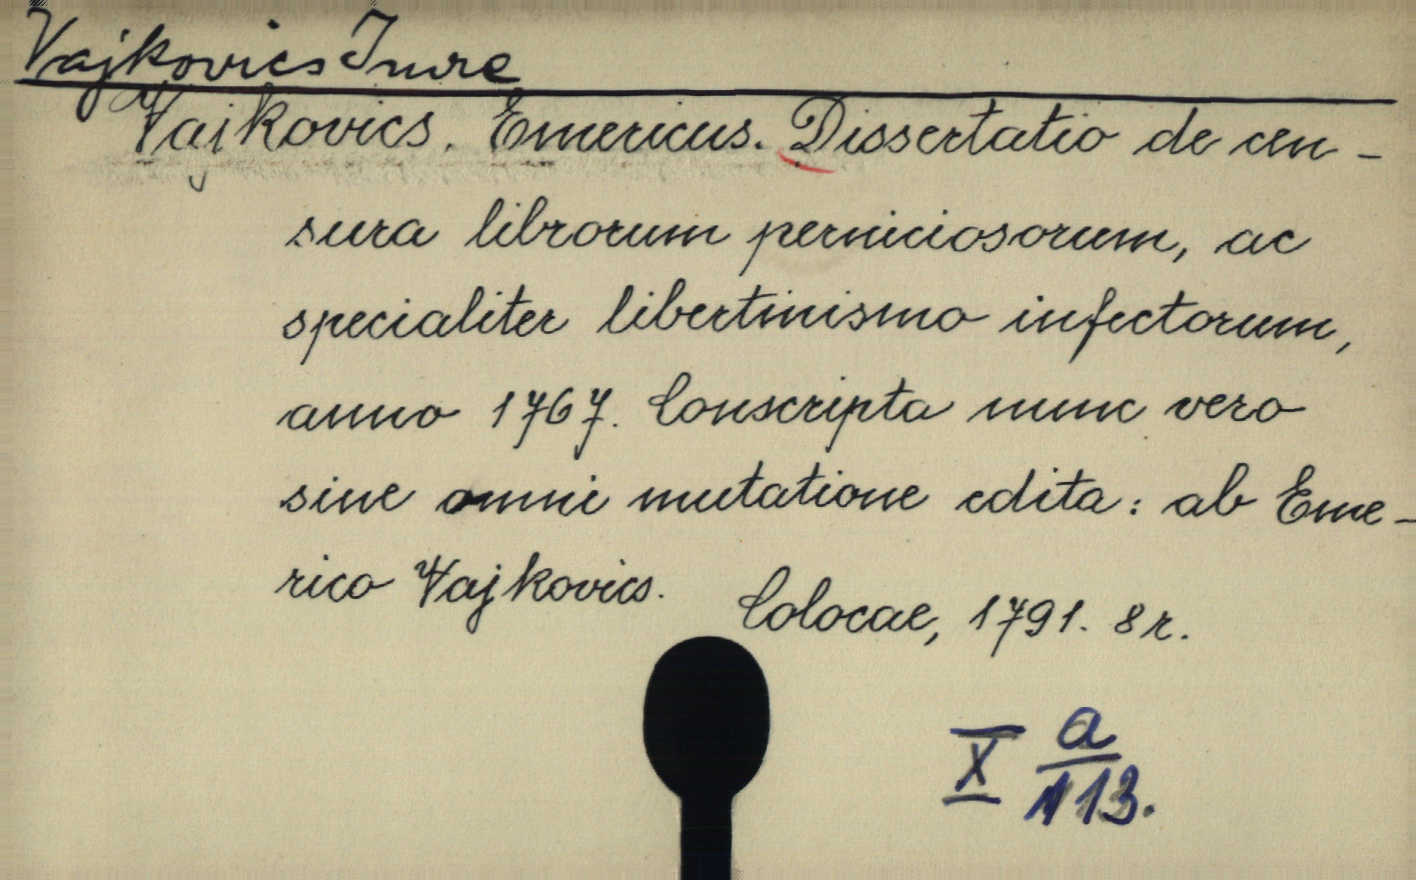 Vajkovics Imre
Vajkovics. Emericus. Dissertatio de cen-
sura librorum perniciosorum, ac
specialiter libertinismo infectorum,
anno 1767. Conscripta nunc vero
sine omni mutatione edita: ab Eme-
rico Vajkovics. Colocae, 1791. 8r.
X a
113.